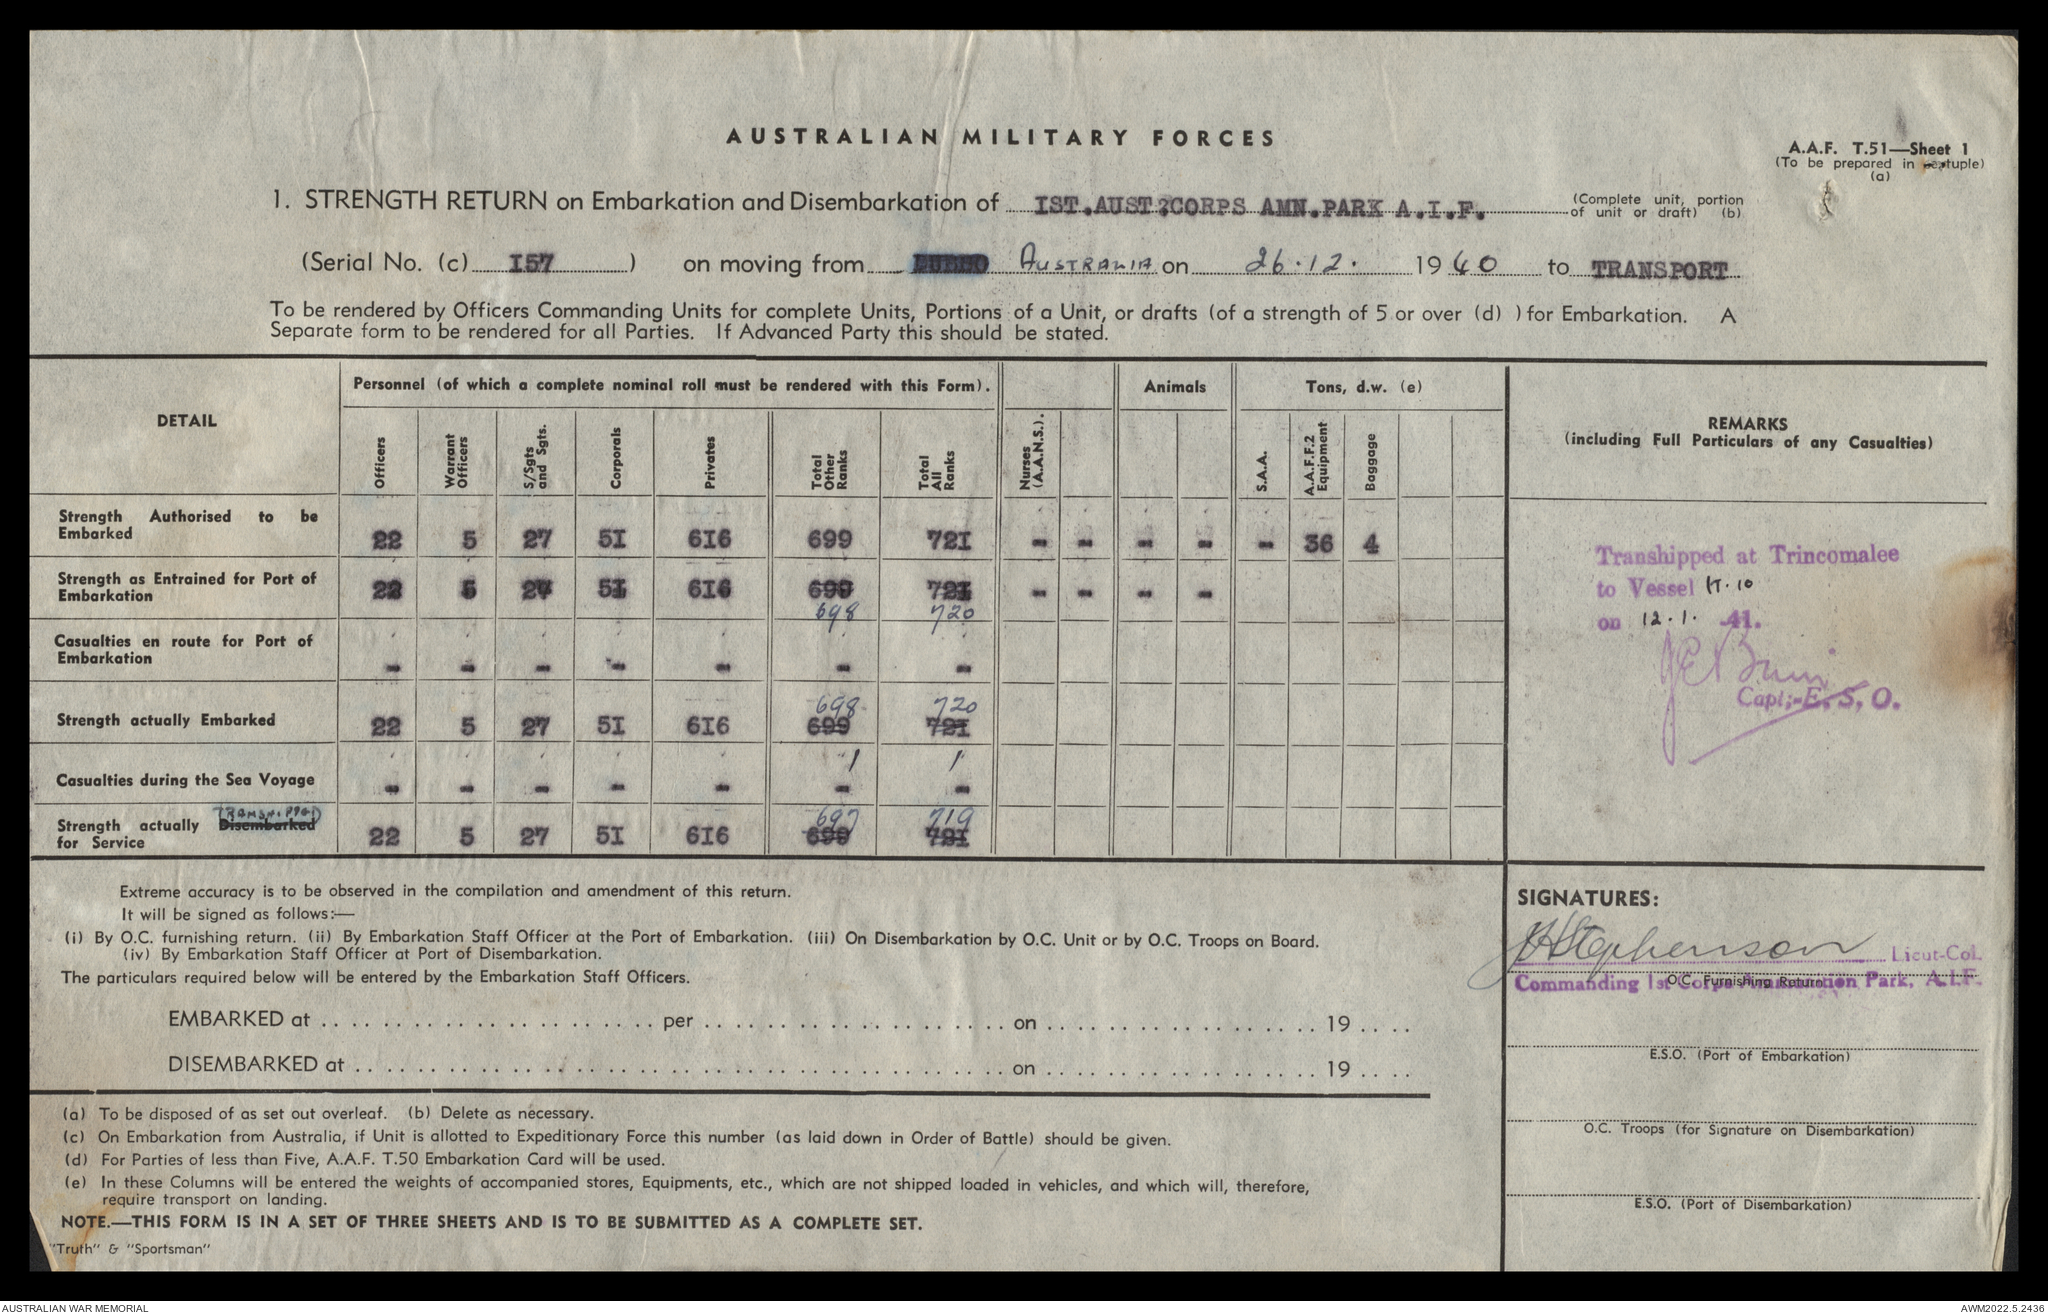 AUSTRALIAN MILITARY FORCES
A.A.F. T.51—Sheet 1
(To be prepared in tuple)
(a)
1. STRENGTH RETURN on Embarkation and Disembarkation of IST.AUST?CORPS AMN.PARK A.I.F. (Complete unit, portion
of unit or draft) (b)
(Serial No. (c) I57 ) on moving from AUSTRALIA on 26.12. 1940 to TRANSPORT
To be rendered by Officers Commanding Units for complete Units, Portions of a Unit, or drafts (of a strength of 5 or over (d) ) for Embarkation. A
Separate form to be rendered for all Parties. If Advanced Party this should be stated.
DETAIL
Personnel (of which a complete nominal roll must be rendered with this Form).
Animals
Tons, d.w. (e)
REMARKS
(including Full Particulars of any Casualties)
Officers
Warrant Officers
S/Sgts and Sgts.
Corporals
Privates
Total Other Ranks
Total All Ranks
Nurses (A.A.N.S.).
S.A.A.
A.A.F.F.2 Equipment
Baggage
Strength Authorised to be
Embarked 22 5 27 5I 6I6 699 72I - - - - - 36 4
Strength as Entrained for Port of
Embarkation 22 5 27 5I 6I6 699 72I - - - -
698 720
Casualties en route for Port of
Embarkation - - - - - - -
698 720
Strength actually Embarked 22 5 27 5I 6I6 699 72I
1 1
Casualties during the Sea Voyage - - - - - - -
TRANSHIPPED 697 719
Strength actually Disembarked
for Service 22 5 27 5I 6I6 699 72I
Transhipped at Trincomalee
to Vessel H.T.10
on 12.1. 41.
Capt;-E.S.O.
Extreme accuracy is to be observed in the compilation and amendment of this return.
It will be signed as follows:—
(i) By O.C. furnishing return. (ii) By Embarkation Staff Officer at the Port of Embarkation. (iii) On Disembarkation by O.C. Unit or by O.C. Troops on Board.
(iv) By Embarkation Staff Officer at Port of Disembarkation.
The particulars required below will be entered by the Embarkation Staff Officers.
EMBARKED at . . . . . per . . . . . on . . . . . 19 . . . .
DISEMBARKED at . . . . . on . . . . . 19 . . . .
SIGNATURES:
JHStephenson Lieut-Col.
O.C. Furnishing Return
Commanding 1st Corps Ammunition Park, A.I.F.
E.S.O. (Port of Embarkation)
O.C. Troops (for Signature on Disembarkation)
E.S.O. (Port of Disembarkation)
(a) To be disposed of as set out overleaf. (b) Delete as necessary.
(c) On Embarkation from Australia, if Unit is allotted to Expeditionary Force this number (as laid down in Order of Battle) should be given.
(d) For Parties of less than Five, A.A.F. T.50 Embarkation Card will be used.
(e) In these Columns will be entered the weights of accompanied stores, Equipments, etc., which are not shipped loaded in vehicles, and which will, therefore,
require transport on landing.
NOTE.—THIS FORM IS IN A SET OF THREE SHEETS AND IS TO BE SUBMITTED AS A COMPLETE SET.
"Truth" & "Sportsman"
AUSTRALIAN WAR MEMORIAL
AWM2022.5.2436